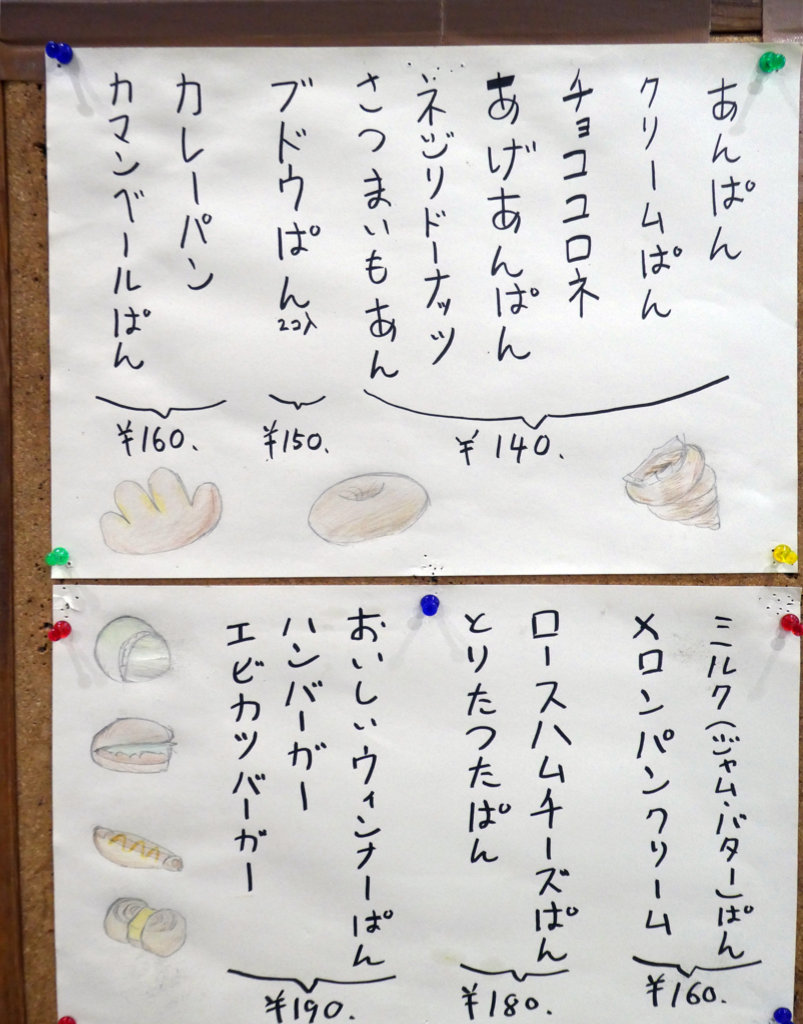 あんぱん
クリームぱん
チョココロネ
あげあんぱん
ネジリドーナッツ
さつまいもあん
¥140.
ブドウぱん 2コ入
¥150.
カレーパン
カマンベールぱん
¥160.
ミルク(ジャム・バター)ぱん
メロンパンクリーム
¥160.
ロースハムチーズぱん
とりたつたぱん
¥180.
おいしいウィンナーぱん
ハンバーガー
エビカツバーガー
¥190.